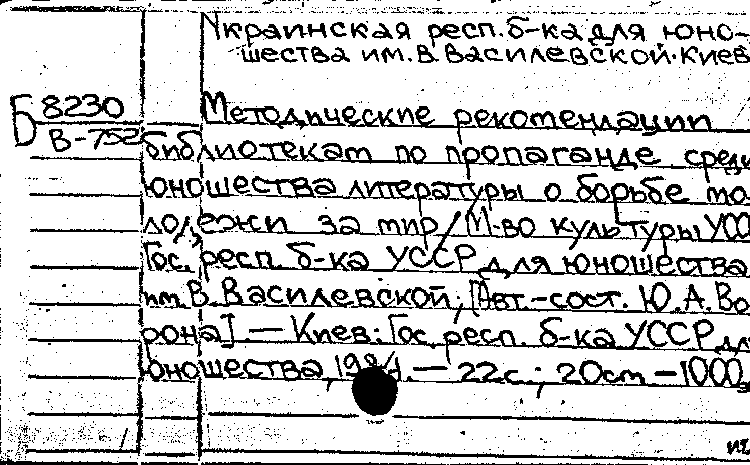 Украинская респ. б-ка для юно-
шества им. В. Василевской. Киев
Б 8230
В-752
Методические рекомендации
библиотекам по пропаганде среди
юношества литературы о борьбе мо
лодежи за мир/М-во культуры УСС
Гос. респ. б-ка УССР для юношества
им. В. Василевской; [Авт.-сост. Ю. А. Во
рона] — Киев: Гос. респ. б-ка УССР дл
юношества, 1984. — 22 с.; 20 cm — 1000 э